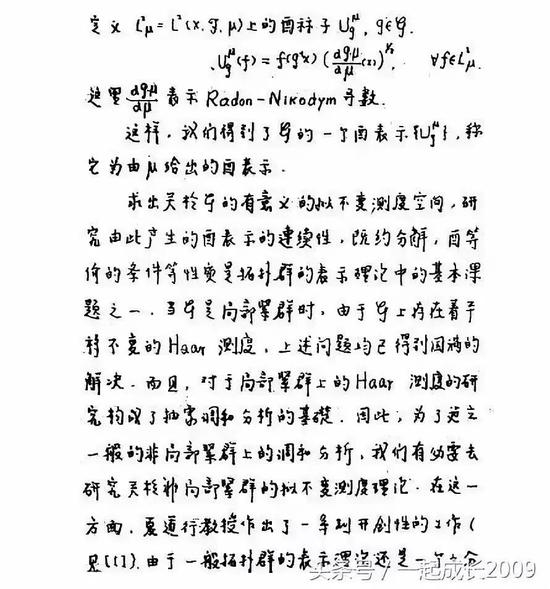 定义 L²μ = L²(X, 𝒢, μ)上的酉祘子 U_g^μ, g∈𝒢.
U_g^μ(f) = f(g⁻¹x) (dgμ/dμ (x))^½, ∀f∈L²μ.
这里 dgμ/dμ 表示 Radon-Nikodym 导数.
这样, 我们得到了 𝒢 的一个酉表示 {U_g^μ}, 称
它为由 μ 给出的酉表示.
求出关于 𝒢 的有意义的拟不变测度空间, 研
究由此产生的酉表示的连续性, 既约分解, 酉等
价的条件等性质是拓扑群的表示理论中的基本课
题之一. 当 𝒢 是局部紧群时, 由于 𝒢 上存在着平
移不变的 Haar 测度, 上述问题均已得到圆满的
解决. 而且, 对于局部紧群上的 Haar 测度的研
究构成了抽象调和分析的基礎. 因此, 为了建立
一般的非局部紧群上的调和分析, 我们有必要去
研究关于非局部紧群的拟不变测度理论. 在这一
方面, 夏道行教授作出了一系列开创性的工作(
见[1]). 由于一般拓扑群的表示理论还是一个十分
头条号 / 一起成长2009